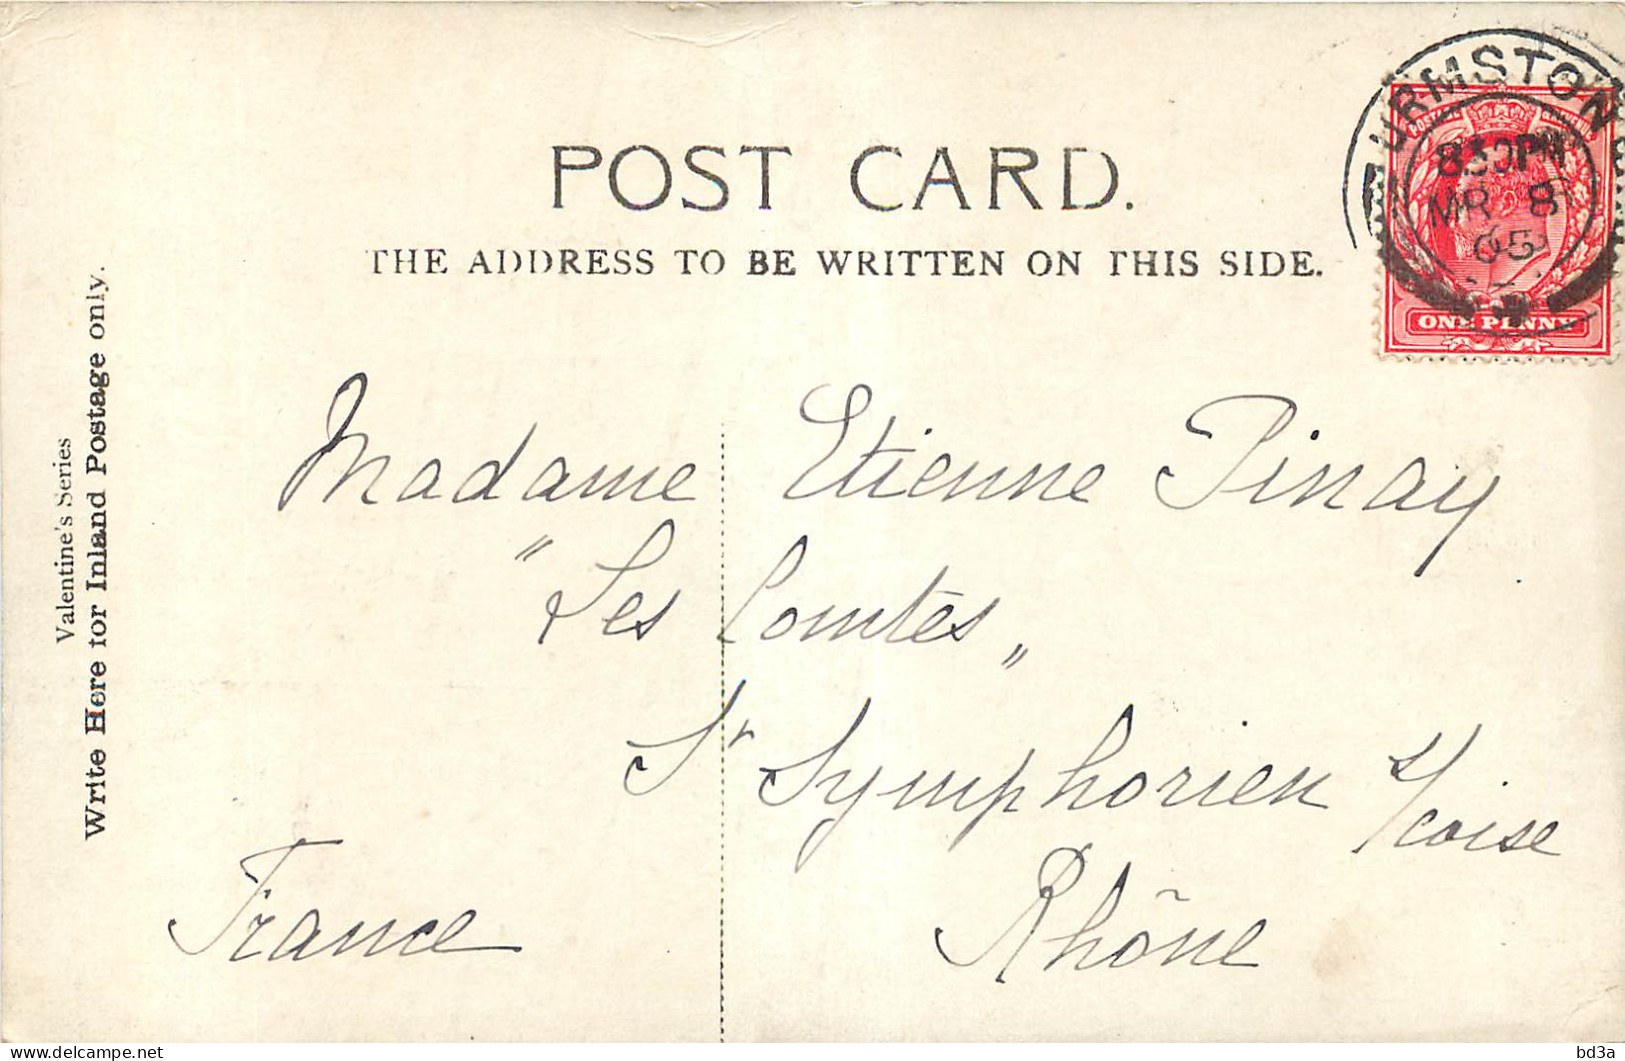 POST CARD.
THE ADDRESS TO BE WRITTEN ON THIS SIDE.
Valentine's Series
Write Here for Inland Postage only.
URMSTON
8.30PM
MR 8
05
ONE PENNY
Madame Etienne Pinay
"Les Comtes"
St Symphorien s/coise
Rhône
France
bd3a